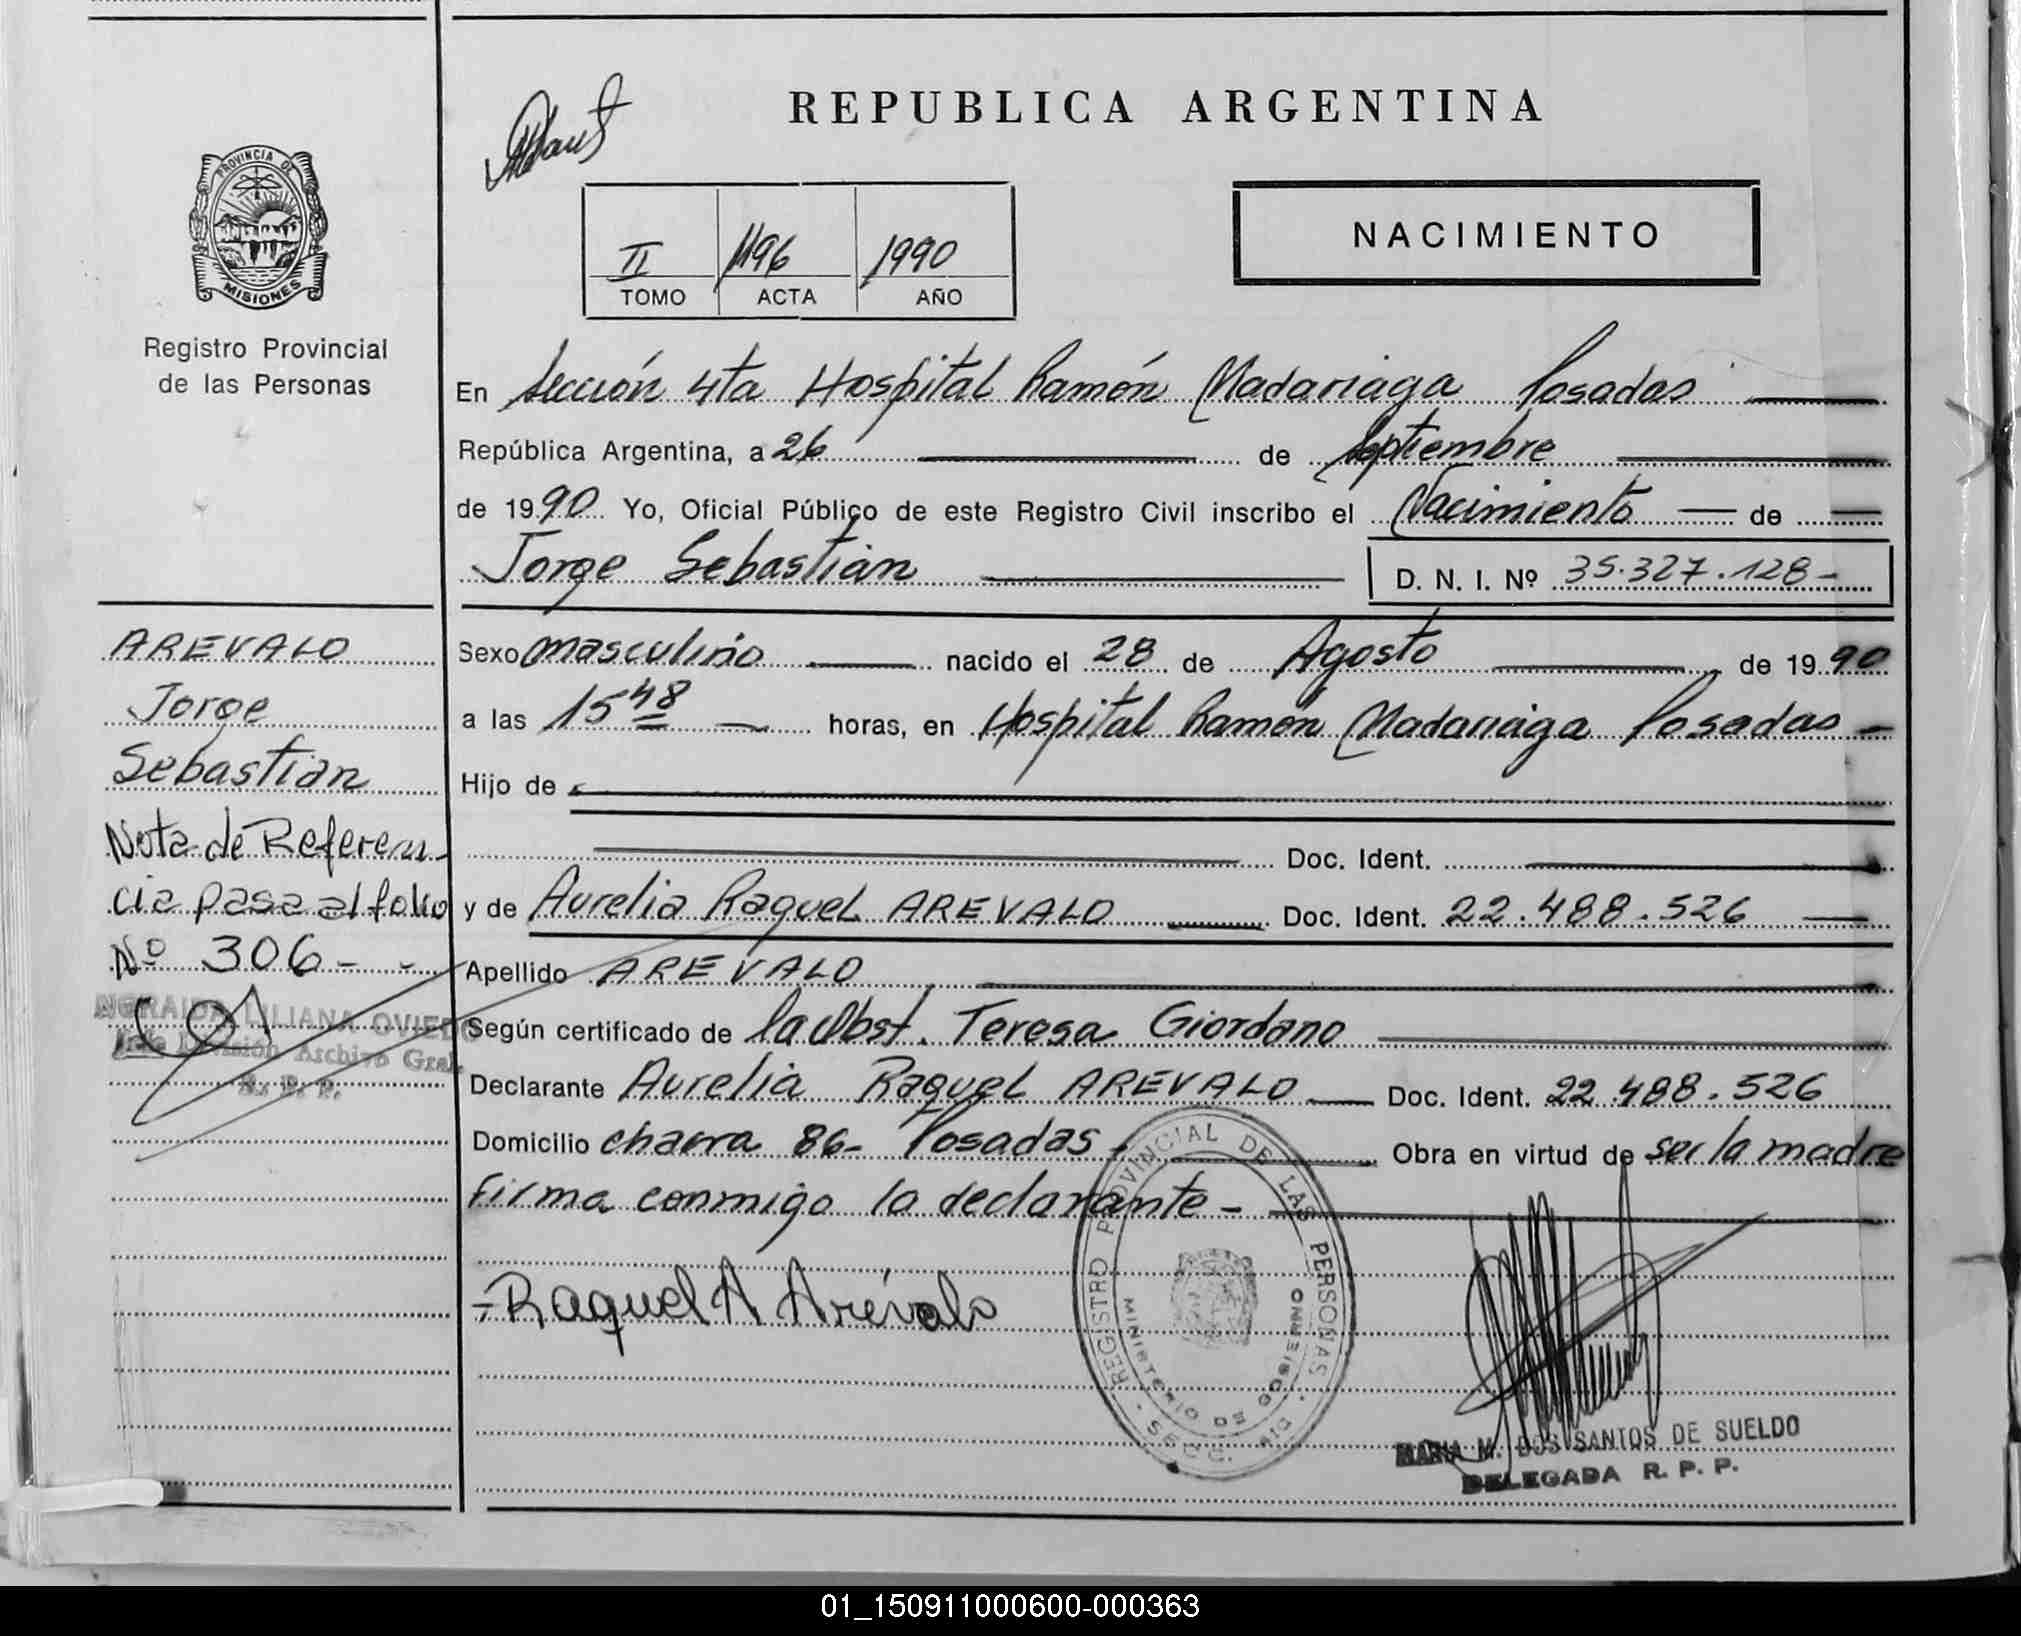 REPUBLICA ARGENTINA
PROVINCIA DE
MISIONES
Registro Provincial
de las Personas
NACIMIENTO
II 1196 1990
TOMO ACTA AÑO
En Sección 4ta Hospital Ramón Madariaga Posadas
República Argentina, a 26 de Septiembre
de 1990 Yo, Oficial Público de este Registro Civil inscribo el Nacimiento de
Jorge Sebastián
D. N. I. Nº 35.327.128-
AREVALO
Jorge
Sebastian
Nota de Referen-
cia pasa al folio
Nº 306-
LILIANA OVIEDO
División Archivo Gral.
R. P. P.
Sexo masculino nacido el 28 de Agosto de 1990
a las 15 48 horas, en Hospital Ramón Madariaga Posadas -
Hijo de
Doc. Ident.
y de Aurelia Raquel AREVALO Doc. Ident. 22.488.526
Apellido AREVALO
Según certificado de la Obst. Teresa Giordano
Declarante Aurelia Raquel AREVALO Doc. Ident. 22.488.526
Domicilio chacra 86- Posadas - Obra en virtud de ser la madre
Firma conmigo la declarante -
Raquel A Arévalo
REGISTRO PROVINCIAL DE LAS PERSONAS
MINISTERIO DE GOBIERNO
SECC. 4ta
MARIA M. DOS SANTOS DE SUELDO
DELEGADA R. P. P.
01_150911000600-000363